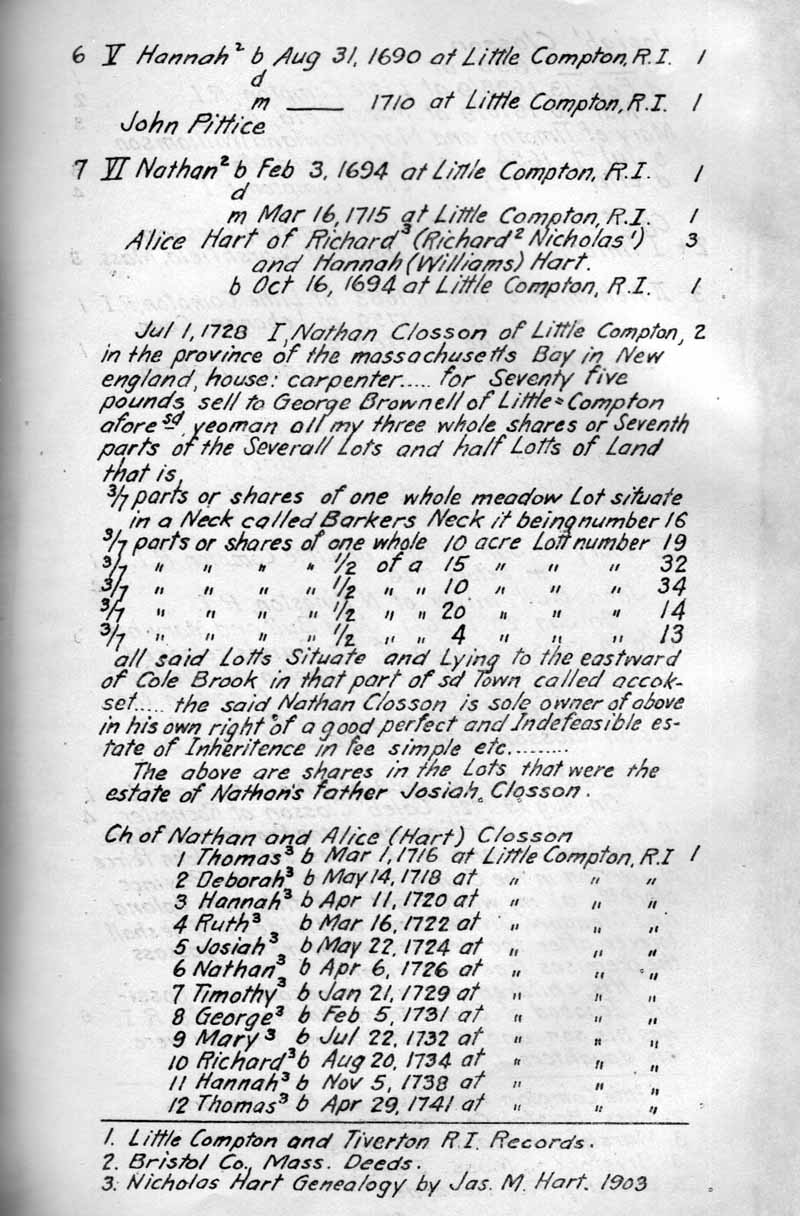 6 V Hannah² b Aug 31, 1690 at Little Compton, R.I. 1
d
m ____ 1710 at Little Compton, R.I. 1
John Pittice
7 VI Nathan² b Feb 3, 1694 at Little Compton, R.I. 1
d
m Mar 16, 1715 at Little Compton, R.I. 1
Alice Hart of Richard³ (Richard² Nicholas¹) 3
and Hannah (Williams) Hart.
b Oct 16, 1694 at Little Compton, R.I. 1
Jul 1, 1728 I, Nathan Closson of Little Compton, 2
in the province of the massachusetts Bay in New
england, house: carpenter..... for Seventy five
pounds sell to George Brownell of Little=Compton
afore sd, yeoman all my three whole shares or Seventh
parts of the Severall Lots and half Lotts of Land
that is,
3/7 parts or shares of one whole meadow Lot situate
in a Neck called Barkers Neck it being number 16
3/7 parts or shares of one whole 10 acre Lott number 19
3/7 " " " " 1/2 of a 15 " " " 32
3/7 " " " " 1/2 " " 10 " " " 34
3/7 " " " " 1/2 " " 20 " " " 14
3/7 " " " " 1/2 " " 4 " " " 13
all said Lotts Situate and Lying to the eastward
of Cole Brook in that part of sd Town called accok-
set..... the said Nathan Closson is sole owner of above
in his own right of a good perfect and Indefeasible es-
tate of Inheritence in fee simple etc.........
The above are shares in the Lots that were the
estate of Nathan's father Josiah Closson.
Ch of Nathan and Alice (Hart) Closson
1 Thomas³ b Mar 1, 1716 at Little Compton, R.I 1
2 Deborah³ b May 14, 1718 at " " "
3 Hannah³ b Apr 11, 1720 at " " "
4 Ruth³ b Mar 16, 1722 at " " "
5 Josiah³ b May 22, 1724 at " " "
6 Nathan³ b Apr 6, 1726 at " " "
7 Timothy³ b Jan 21, 1729 at " " "
8 George³ b Feb 5, 1731 at " " "
9 Mary³ b Jul 22, 1732 at " " "
10 Richard³ b Aug 20, 1734 at " " "
11 Hannah³ b Nov 5, 1738 at " " "
12 Thomas³ b Apr 29, 1741 at " " "
1. Little Compton and Tiverton R.I. Records.
2. Bristol Co., Mass. Deeds.
3. Nicholas Hart Genealogy by Jas. M. Hart. 1903